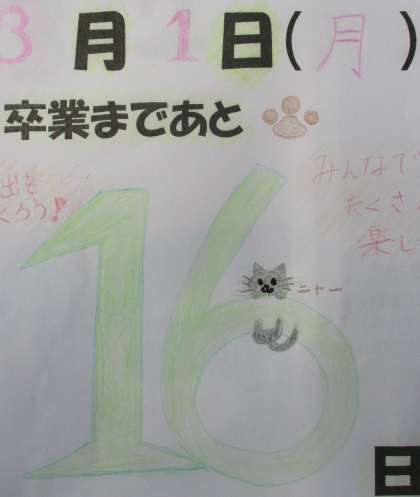 3月1日(月)
卒業まであと
みんなで
出を
たくさ
くろう!
楽し
ニトー
16
日